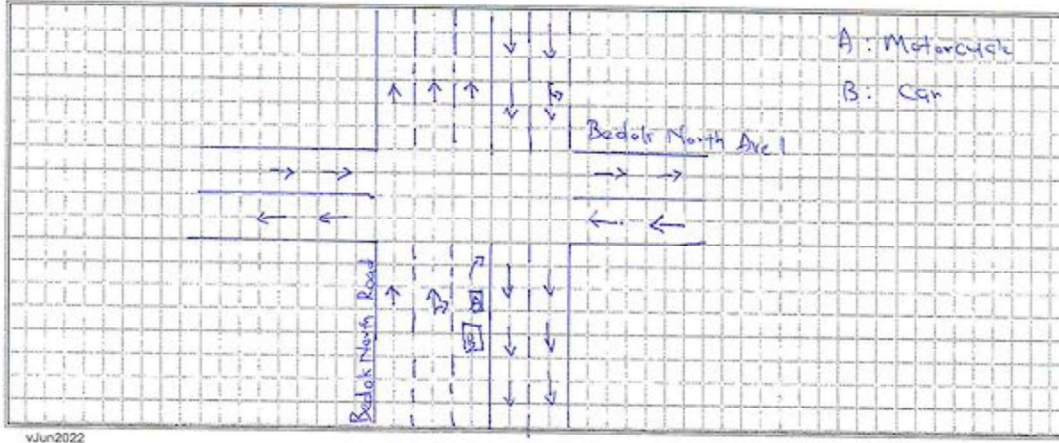 A: Motorcycle
B: Car
Bedok North Ave 1
Bedok North Road
B
vJun2022